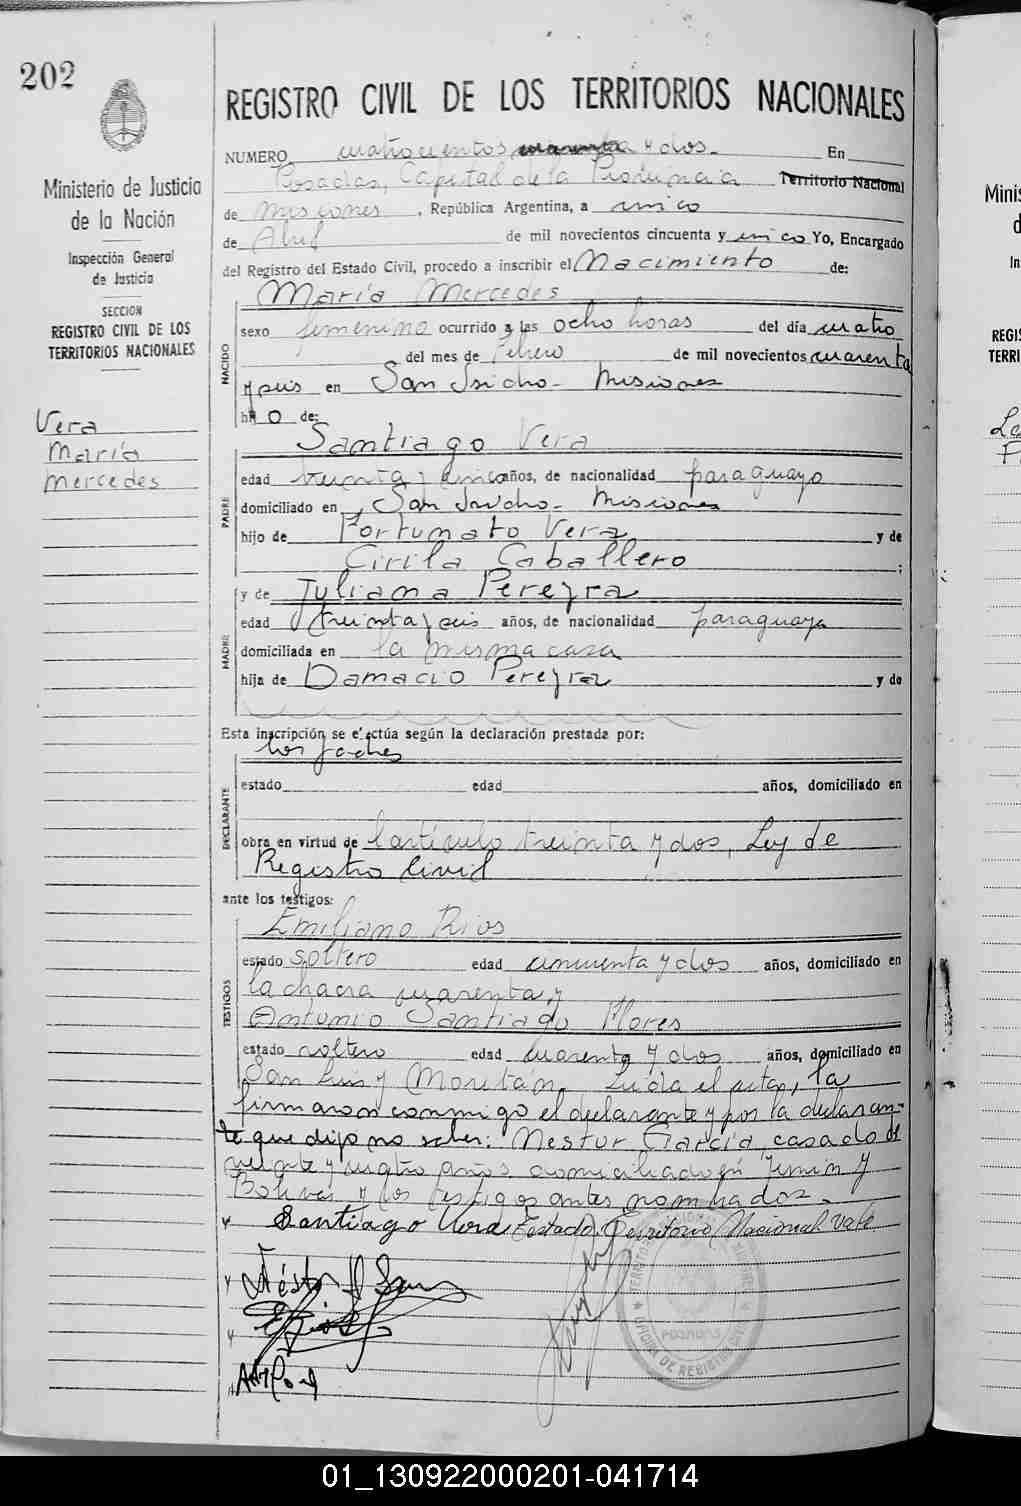 202
REGISTRO CIVIL DE LOS TERRITORIOS NACIONALES
NUMERO cuatrocientos cuarenta y dos.- En
Posadas, Capital de la Provincia Territorio Nacional
de Misiones, República Argentina, a cinco
de Abril de mil novecientos cincuenta y cinco Yo, Encargado
del Registro del Estado Civil, procedo a inscribir el Nacimiento de:
Ministerio de Justicia
de la Nación
Inspección General
de Justicia
SECCION
REGISTRO CIVIL DE LOS
TERRITORIOS NACIONALES
Vera
María
Mercedes
NACIDO
María Mercedes
sexo femenino ocurrido a las ocho horas del día cuatro
del mes de Febrero de mil novecientos cuarenta
y seis en San Isidro - Misiones
hijo de:
PADRE
Santiago Vera
edad treinta y cinco años, de nacionalidad paraguayo
domiciliado en San Isidro - Misiones
hijo de Fortunato Vera y de
Cirila Caballero ;
MADRE
y de Juliana Pereyra
edad treinta y seis años, de nacionalidad paraguaya
domiciliada en la misma casa
hija de Damacio Pereyra y de
Esta inscripción se efectúa según la declaración prestada por:
DECLARANTE
los padres
estado edad años, domiciliado en
obra en virtud de l artículo treinta y dos, Ley de
Registro Civil
ante los testigos:
TESTIGOS
Emiliano Rios
estado soltero edad cincuenta y dos años, domiciliado en
la chacra cuarenta, y
Antonio Santiago Flores
estado soltero edad cuarenta y dos años, domiciliado en
San Luis y Moritán. Leída el acta, la
firmaron conmigo el declarante y por la declaran-
te que dijo no saber: Nestor García, casado de
veinte y cuatro años domiciliado en Junin y
Bolivar y los testigos antes nombrados.
Santiago Vera Testado: Territorio Nacional Vale
OFICINA DE REGISTRO CIVIL
POSADAS
Minis
d
In
REGIS
TERRI
01_130922000201-041714